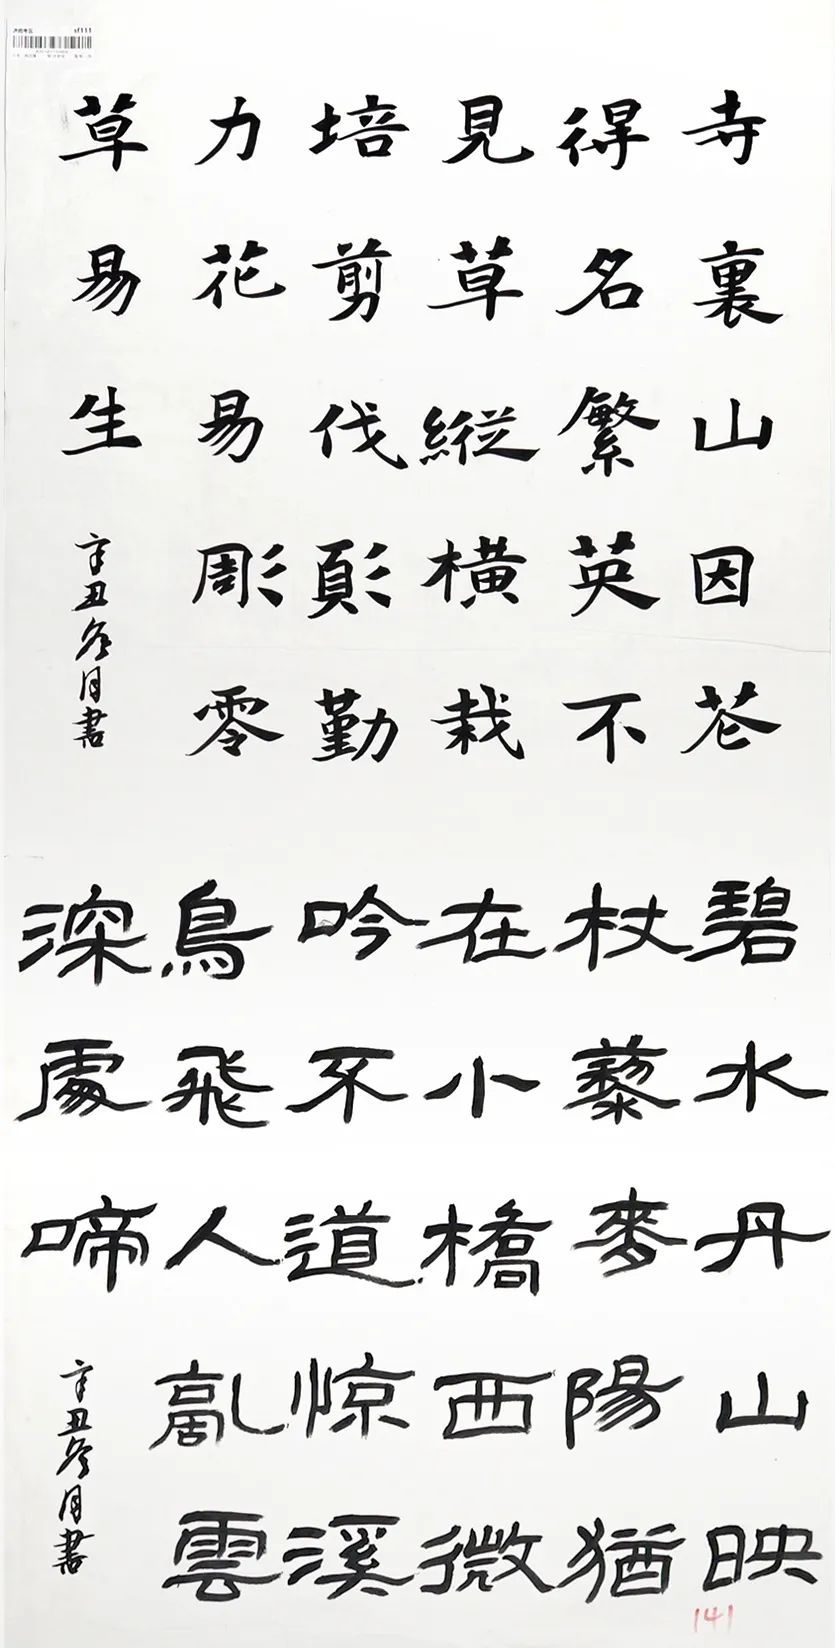 sf111
寺裏山因花
得名繁英不
見草縱橫栽
培剪伐須勤
力花易彫零
草易生
辛丑冬月書
碧水丹山映
杖藜麥陽猶
在小橋西微
吟不道惊溪
鳥飛人亂雲
深處啼
辛丑冬月書
141